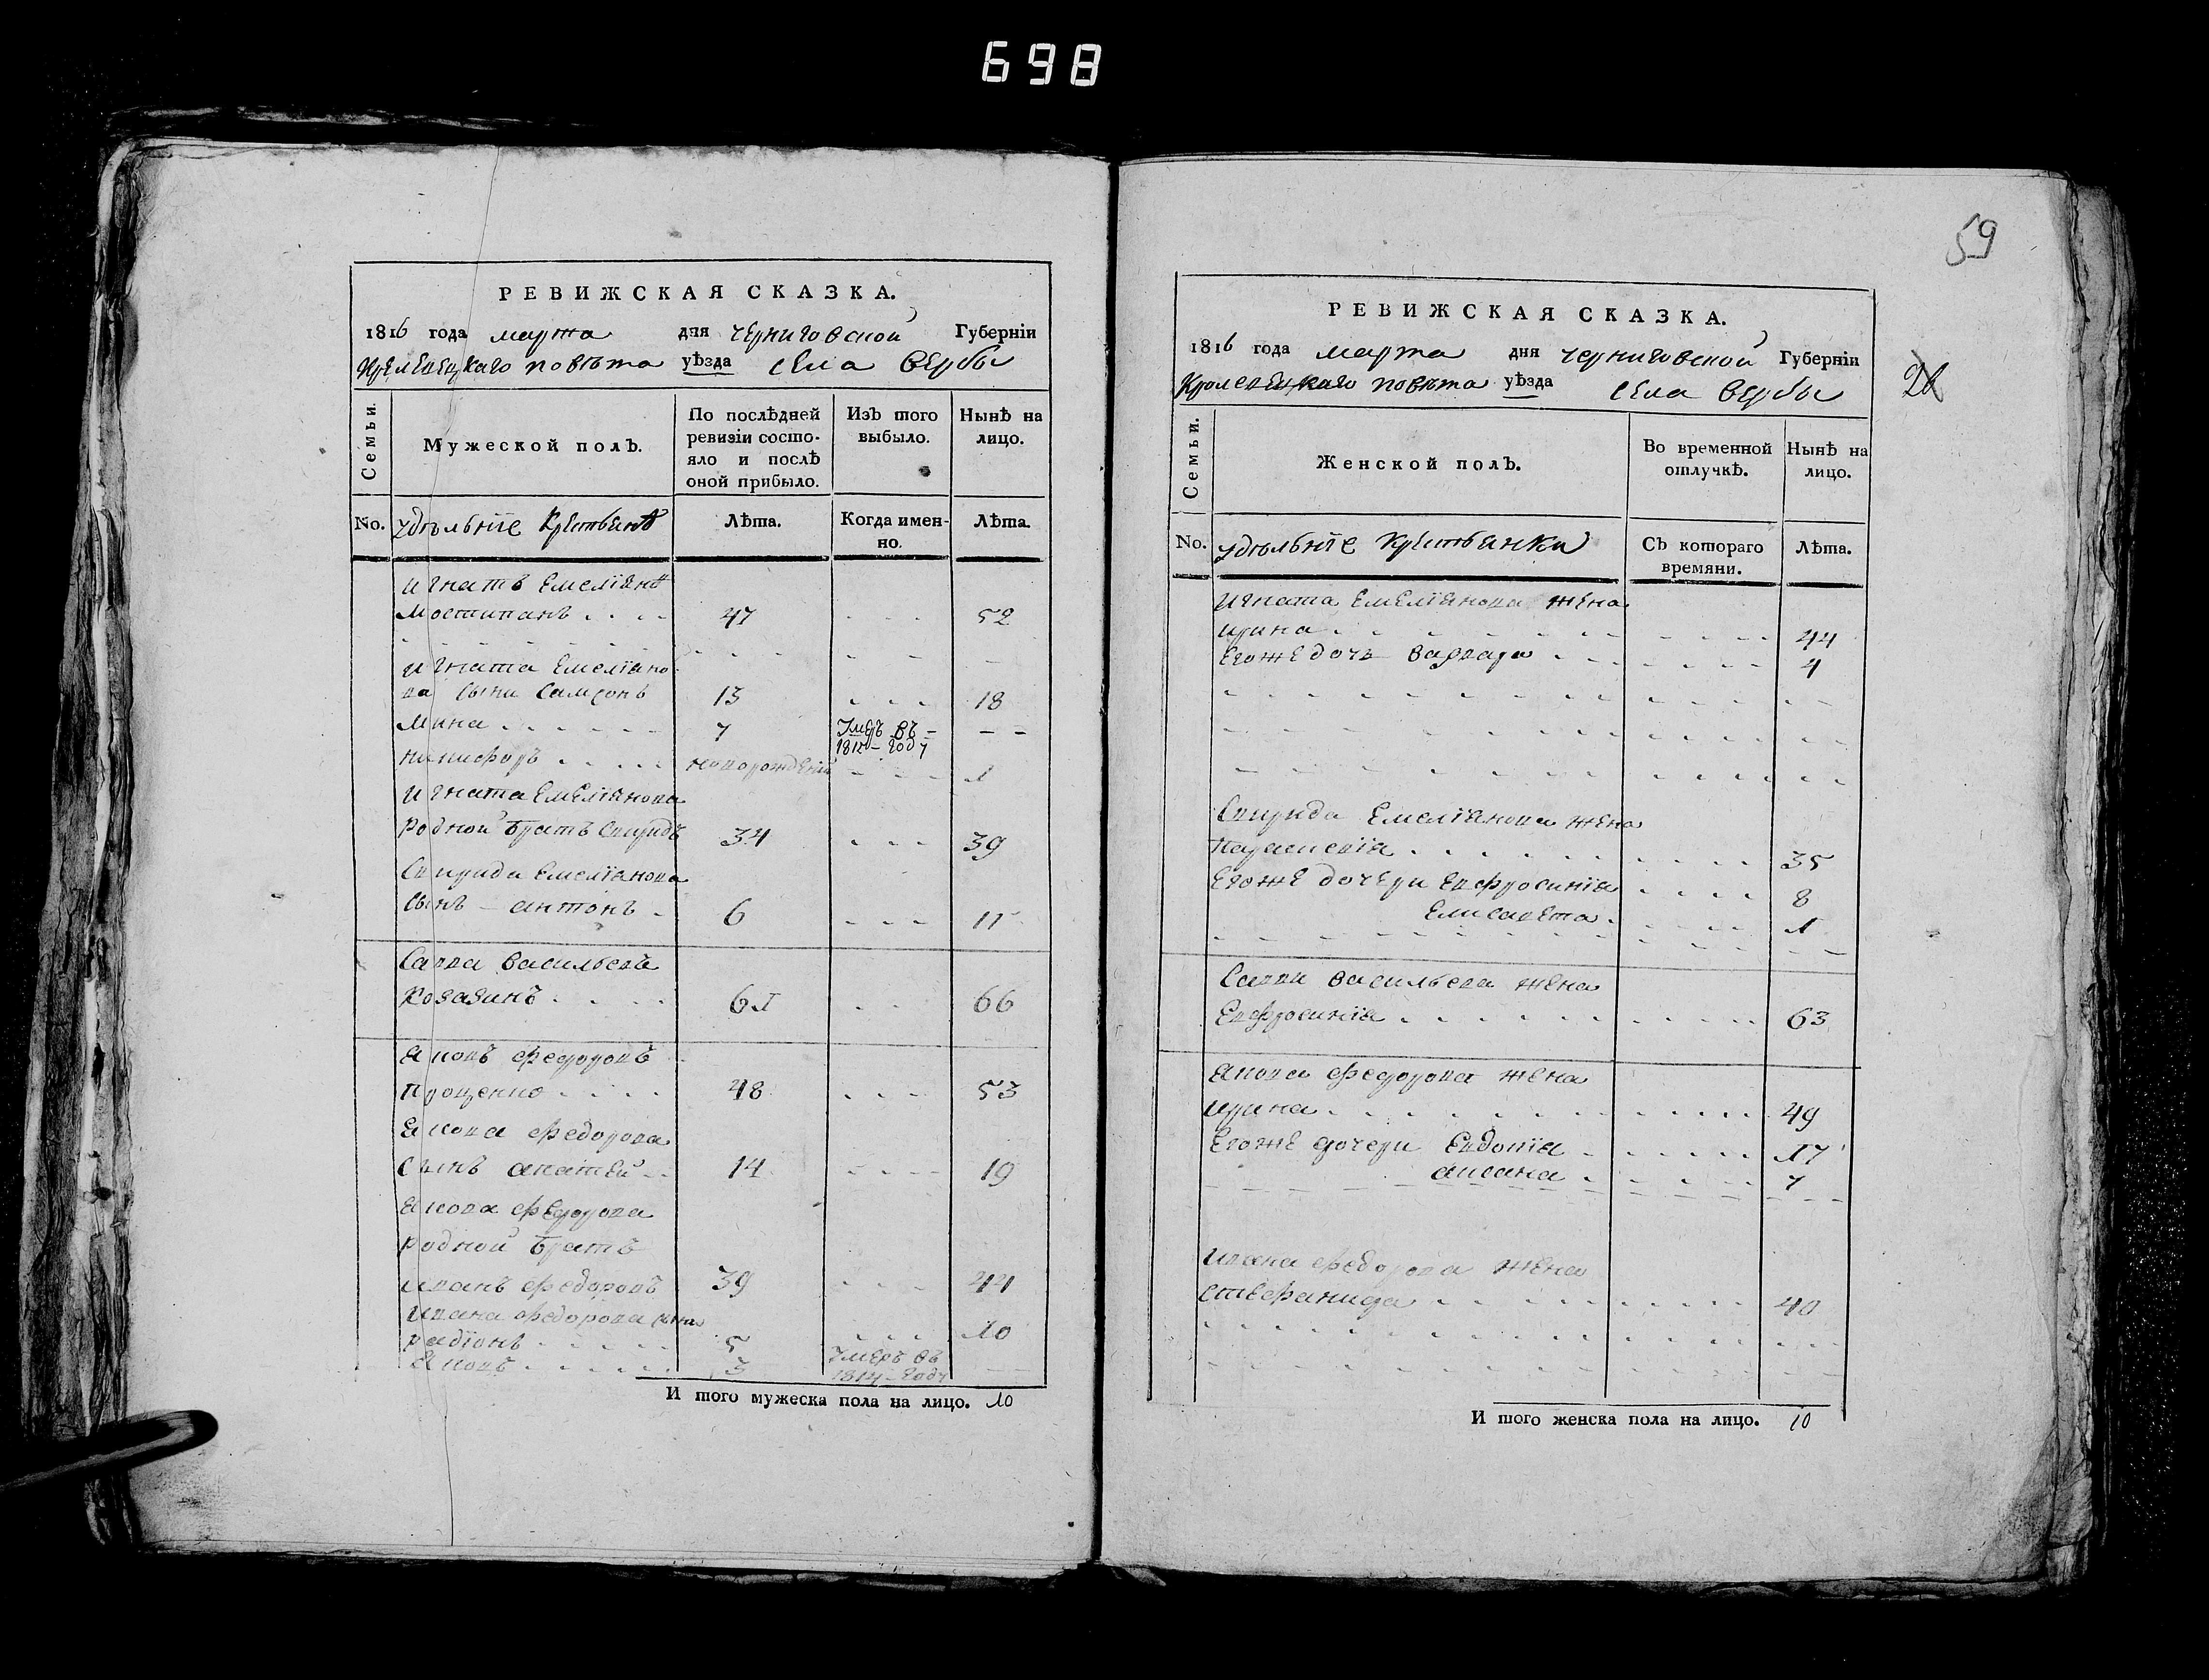 698
РЕВИЖСКАЯ СКАЗКА.
1816 года марта дня черниговской Губернїи
Кролевецкаго повѣта уѣзда села Вербы
Семьи.
Мужеской полъ.
По послѣдней ревизіи состояло и послѣ оной прибыло.
Изъ того выбыло.
Нынѣ на лицо.
No. удѣльніе Крестьянѣ
Лѣта.
Когда именно.
Лѣта.
Игнатъ Емелїанѣ
Мостипанъ . . . . 47 . . . 52
Игната Емелїано
ва сыни Самсонъ 13 . . . 18
Мина . . . . . . 7 Умеръ въ - - -
1812 - году
Никифоръ . . . . новорожденій - - - 1
Игната Емелїанова
родной братъ Спиридъ 34 . . . 39
Спирида Емелїанова
Сынъ - антонъ - 6 . . . 11
Савва Васильевъ
Козазинъ . . . . 61 . . 66
Яковъ Федоровъ
Проценко . . . . 48 . . . 53
Якова Федорова
Сынъ апатей . . 14 . . . 19
Якова Федорова
родной братъ
иванъ Федоровъ 39 . . . 44
ивана Федорова сына
радїонъ . . . . . 5 . . . 10
Яковъ . . . . . 3 Умеръ въ
1814 - году
И того мужеска пола на лицо. 10
59
РЕВИЖСКАЯ СКАЗКА.
1816 года марта дня черниговской Губернїи
Кролевецкаго повѣта уѣзда села Вербы
Семьи.
Женской полъ.
Во временной отлучкѣ.
Нынѣ на лицо.
No. удѣльніе крестьянки
Съ котораго времяни.
Лѣта.
Игната Емелїанова жена
ирина . . . . . . 44
Егоже дочь Варвара . . . 4
Спирида Емелїанова жена
Параскевїя . . . . . . 35
Егоже дочери Евфросинїя . . . . 8
Елисавета . . . . . 1
Савви Васильева жена
Евфросинїя . . . . . . 63
Якова Федорова жена
ирина . . . . . . 49
Егоже дочери Евдокїя . . . . . 17
аксана . . . . 7
ивана Федорова жена
Стеѳанида . . . . . . 40
И того женска пола на лицо. 10